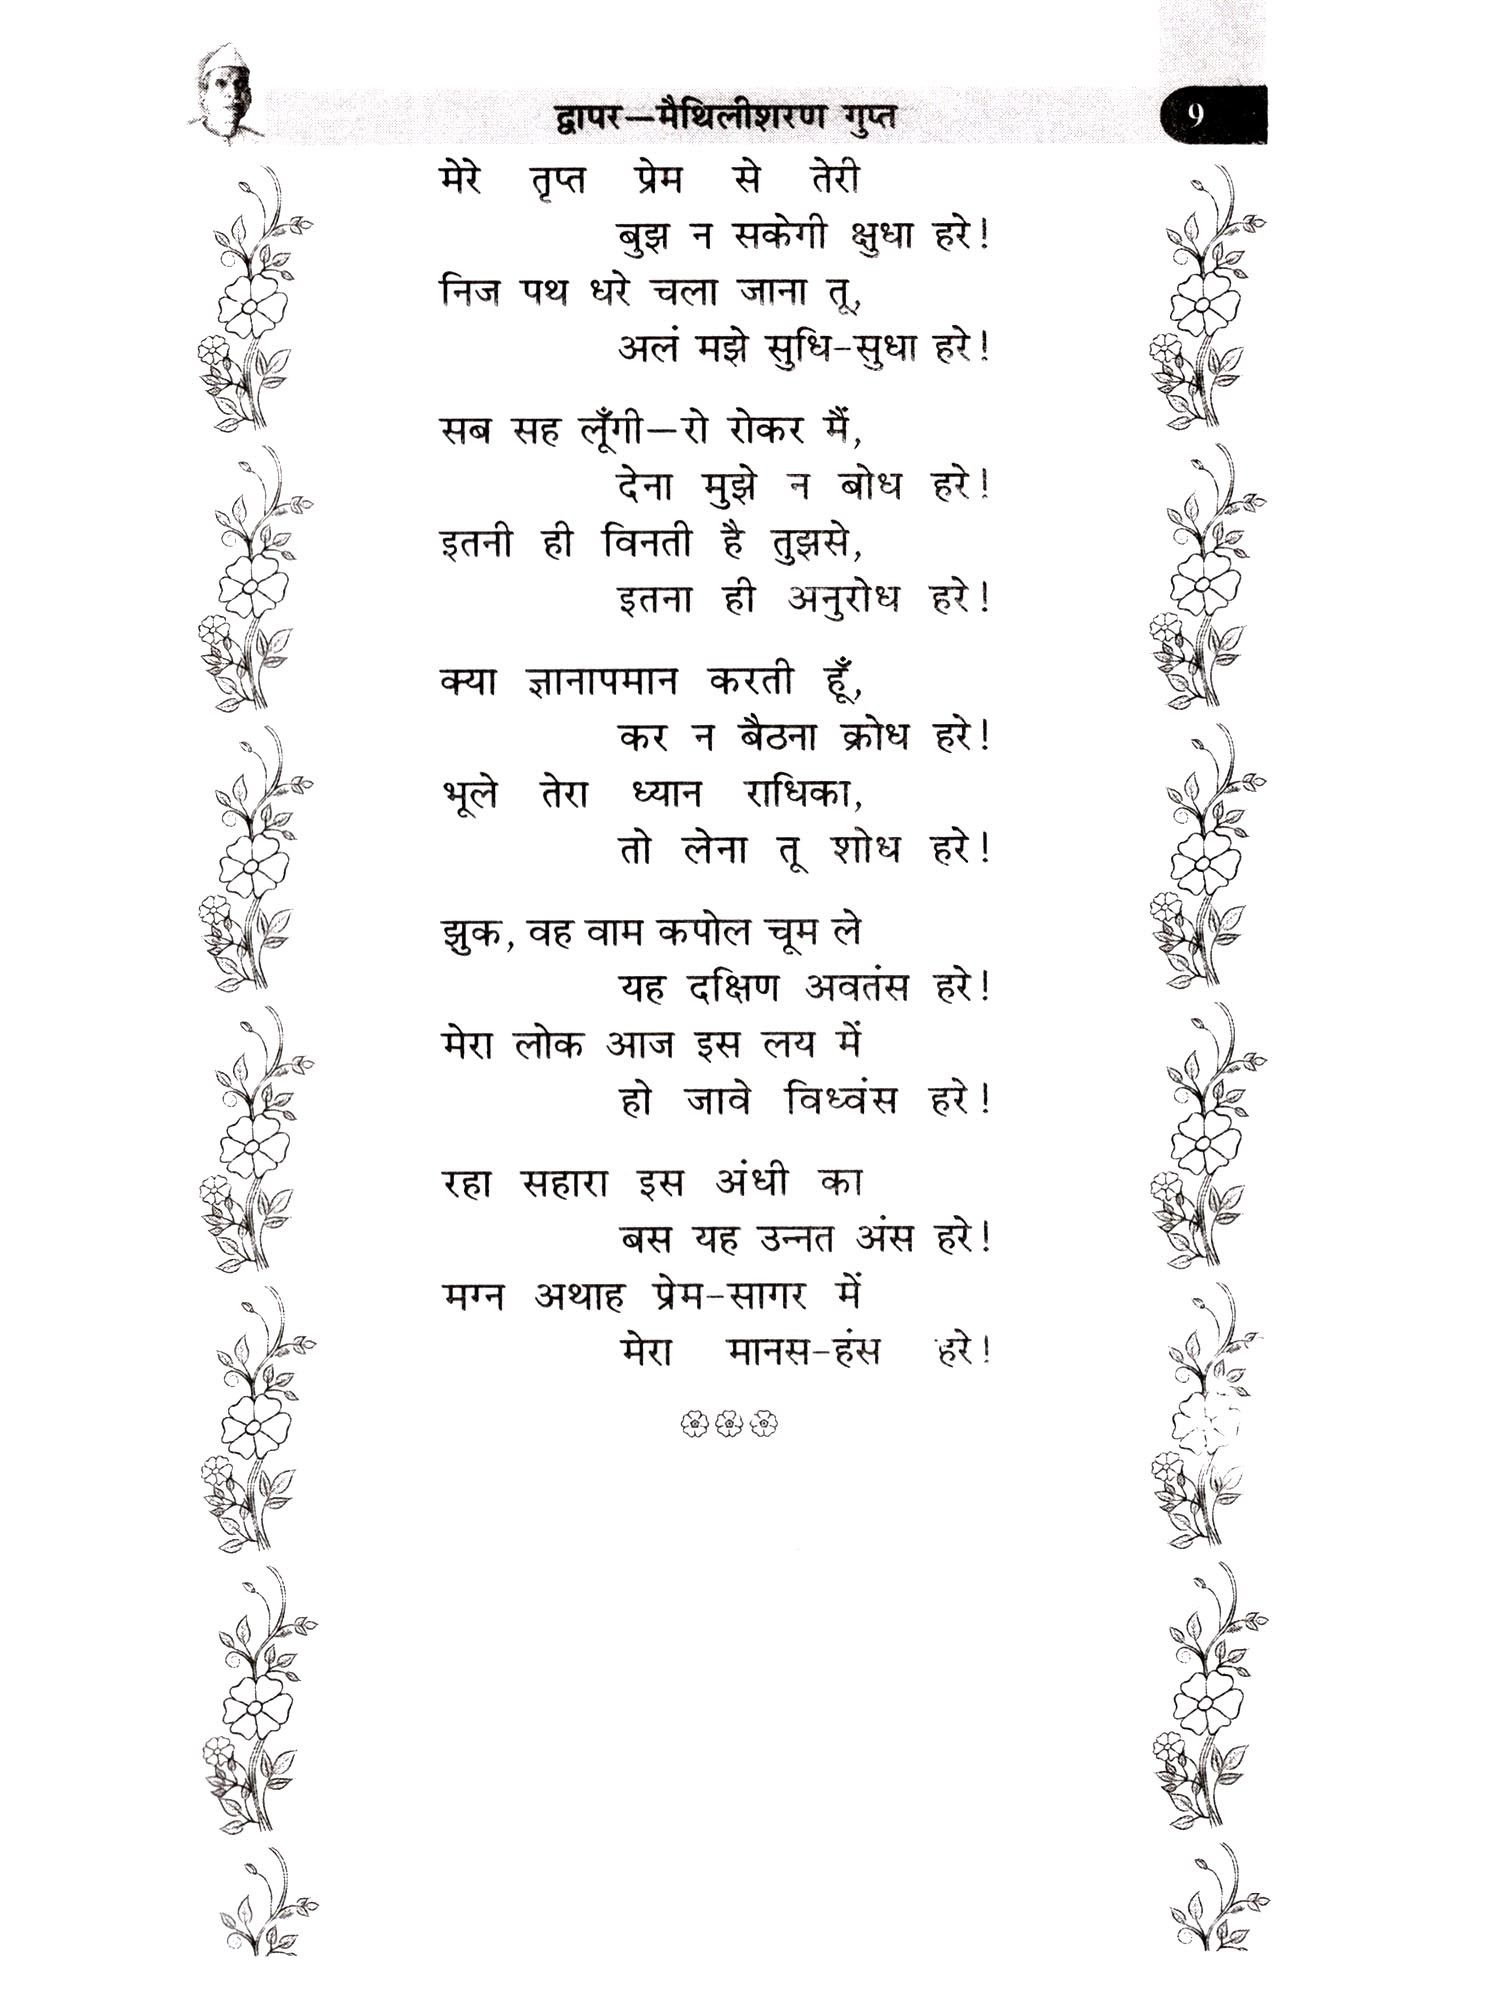 द्वापर—मैथिलीशरण गुप्त 9
मेरे तृप्त प्रेम से तेरी
बुझ न सकेगी क्षुधा हरे!
निज पथ धरे चला जाना तू,
अलं मझे सुधि-सुधा हरे!
सब सह लूँगी—रो रोकर मैं,
देना मुझे न बोध हरे!
इतनी ही विनती है तुझसे,
इतना ही अनुरोध हरे!
क्या ज्ञानापमान करती हूँ,
कर न बैठना क्रोध हरे!
भूले तेरा ध्यान राधिका,
तो लेना तू शोध हरे!
झुक, वह वाम कपोल चूम ले
यह दक्षिण अवतंस हरे!
मेरा लोक आज इस लय में
हो जावे विध्वंस हरे!
रहा सहारा इस अंधी का
बस यह उन्नत अंस हरे!
मग्न अथाह प्रेम-सागर में
मेरा मानस-हंस हरे!